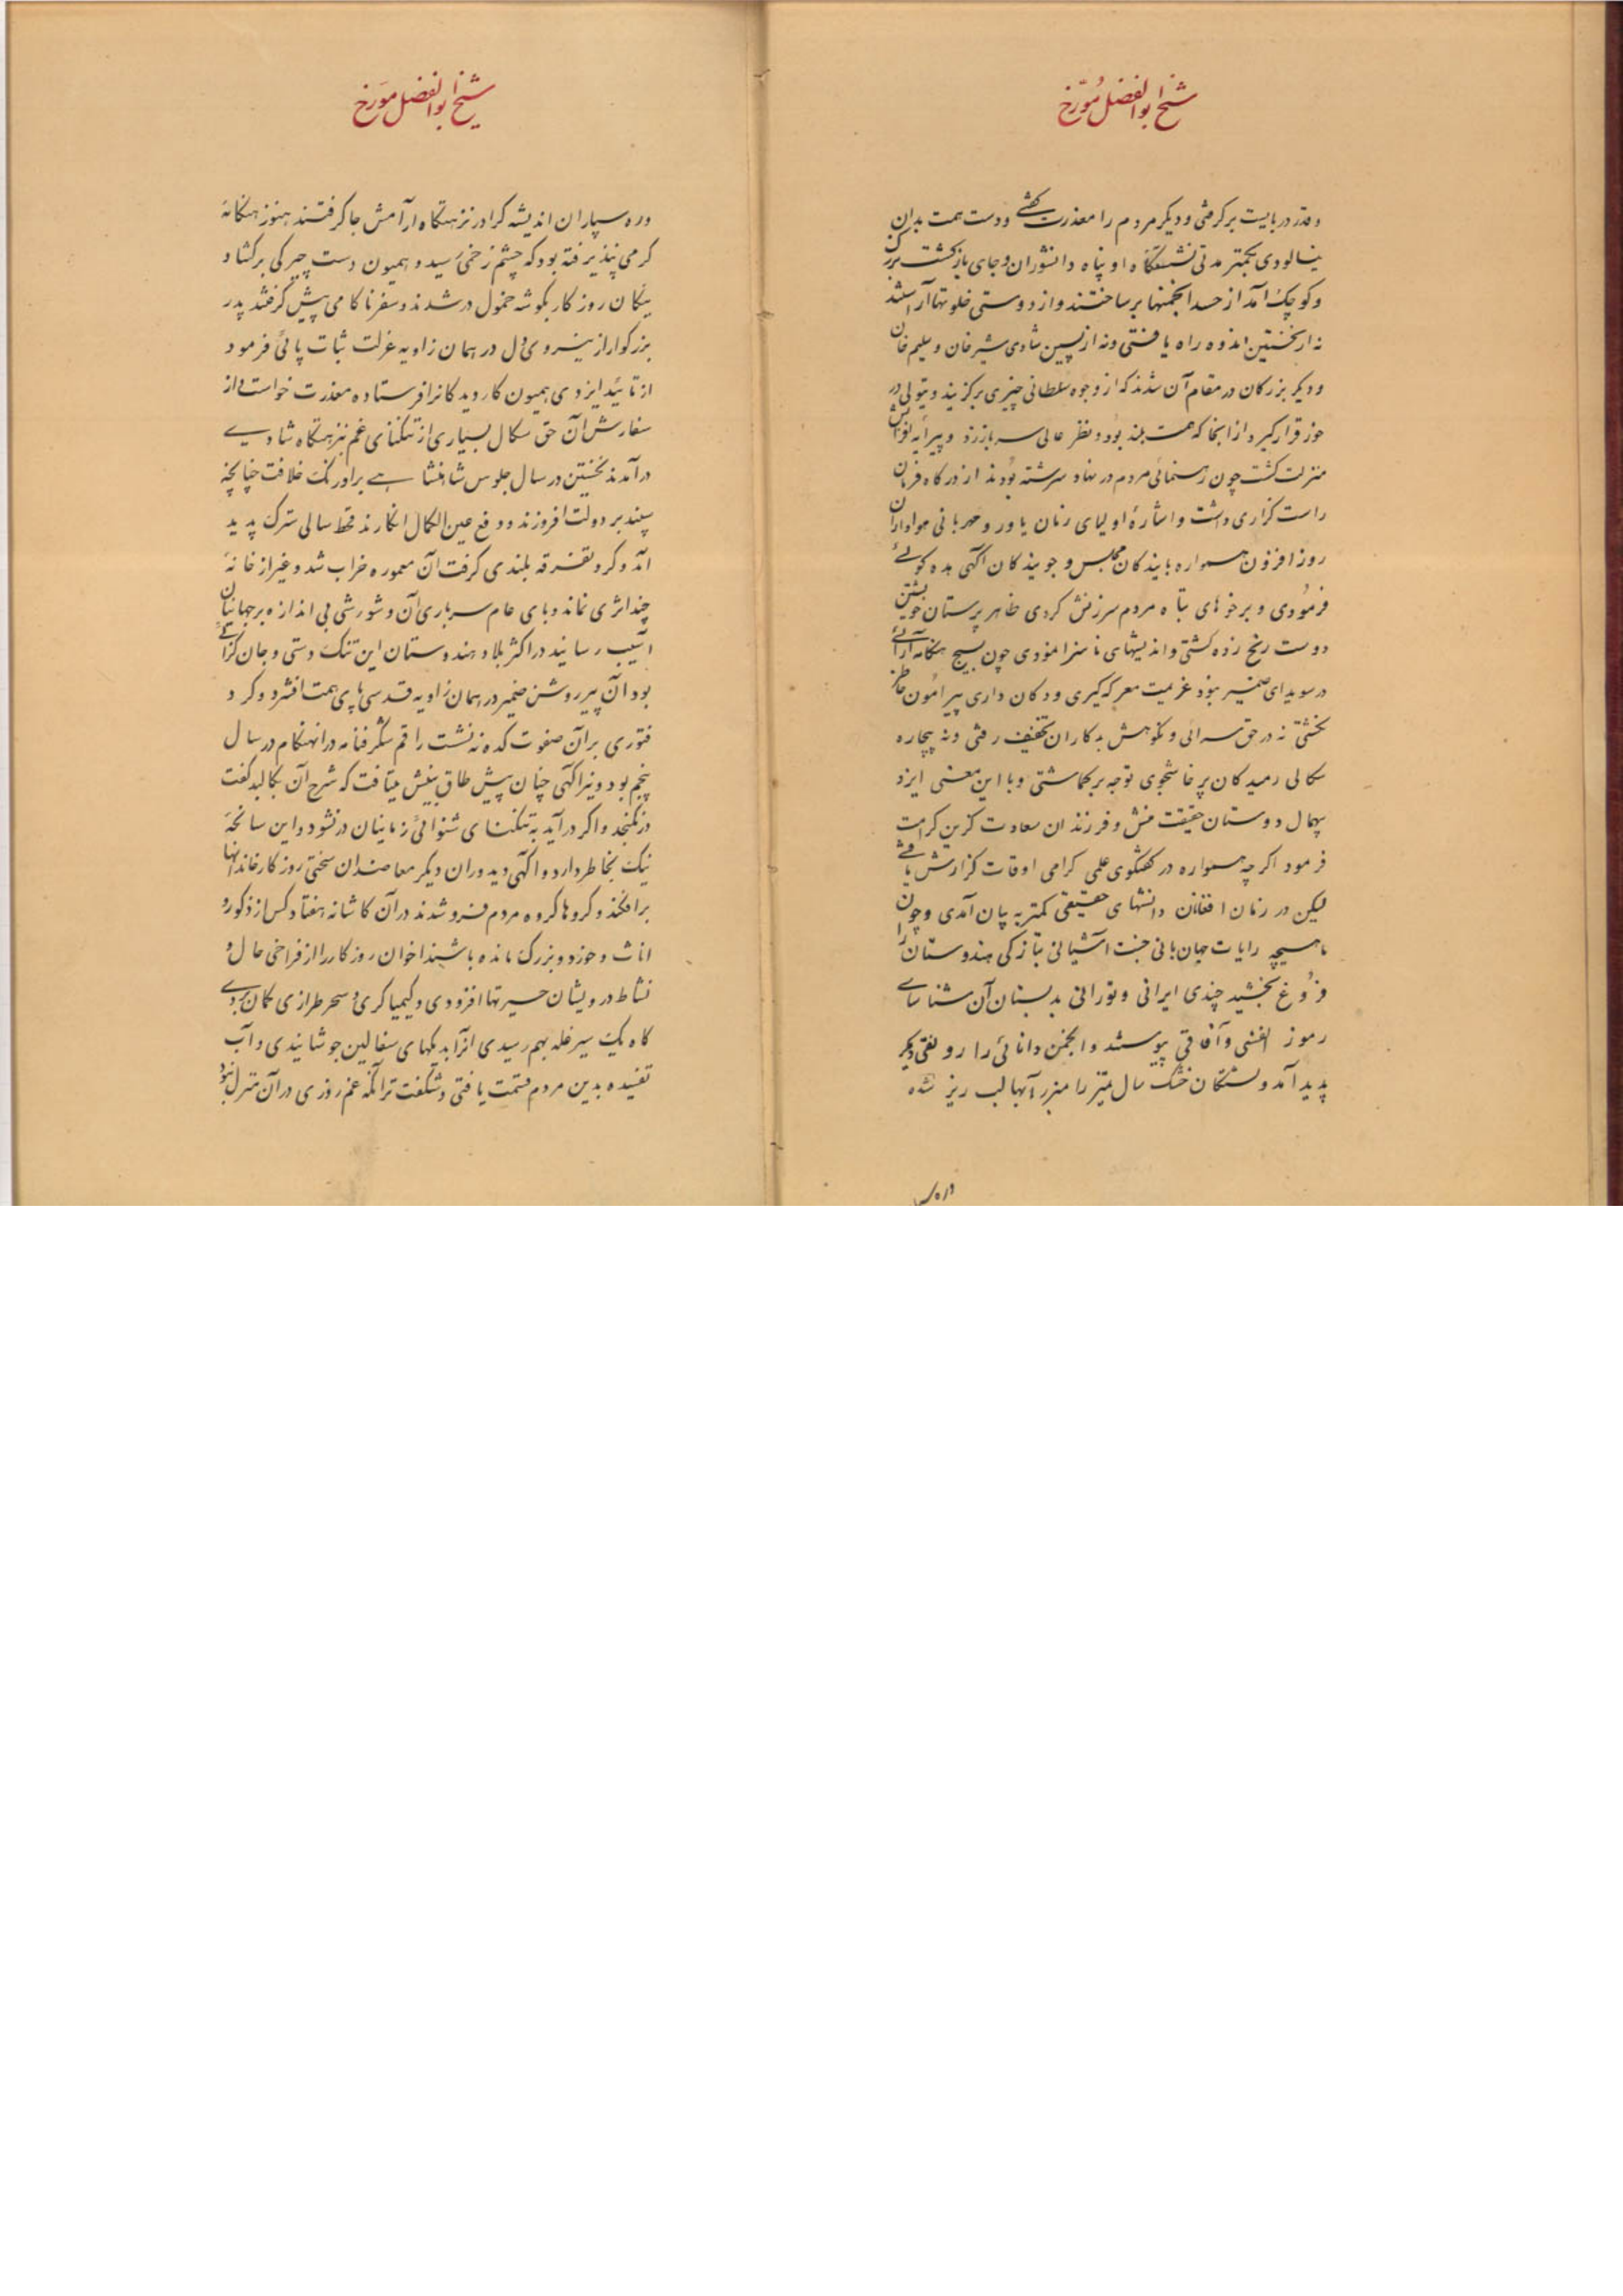 شیخ ابوالفضل مورّخ
و قدر دربایست برگرفتی و دیگر مردم را معذرت گفتے و دست همت بدان
نیالودی بکمتر مدتی نشستگاه او پناه دانشوران و جای بازگشت بزرگ
و کوچک آمد از حسد انجمنها برساختند و از دوستی خلوتها آراستند
نه از نخستین اندوه راه یافتی و نه از پسین شادی شیر خان و سلیم خان
و دیگر بزرگان در مقام آن شدند که از وجوه سلطانی چیزی برگزیند و تیولی در
خور قرار گیرد از انجا که همت بلند بود و نظر عالی سر باز زد و پیرایه افزایش
منزلت گشت چون رهنمائی مردم در نهاد سرشته بودند از درگاه فرمان
راست گزاری داشت و اشارهٔ اولیای زمان یاور و مهربانی هواداران
روز افزون همواره بایندگان مجلس و جویندگان آگهی بده گوئے
فرمودی و بر خوهای تباه مردم سرزنش کردی ظاهر پرستان خویشتن
دوست رنج زده گشتی و اندیشهای ناسزا نمودی چون بسیج هنگامه آرائے
در سویدای ضمیر نبود عزیمت معرکه گیری و دکان داری پیرامون خاطر
نگشتی نه در حق سرائی و نکوهش بدکاران تخفیف رفتی و نه بچاره
سگالی رمیدگان پرخاشجوی توجه برگماشتی و با این معنی ایزد
بیهمال دوستان حقیقت منش و فرزندان سعادت گزین کرامت
فرمود اگرچه همواره در گفتگوی علمی گرامی اوقات گزارش یافتے
لیکن در زمان افغانان دانشهای حقیقی کمتر به بیان آمدی و چون
ماهیچه رایات جهانبانی جنت آشیانی بتازگی هندوستان را
فروغ بخشید چندی ایرانی و تورانی بدبستان آن شناسای
رموز انفسی و آفاقی پیوستند و انجمن دانائی را رونقی دیگر
پدید آمد و تشنگان خشک سال تمیز را منزر آبها لب ریز شده
و ره سپ
شیخ ابوالفضل مورّخ
و ره سپاران اندیشه گرا در نزهتگاه آرامش جا گرفتند هنوز هنگامه
گرمی نپذیرفته بود که چشم زخمی رسید و همیون دست چیرگی برگشاد
نیکان روزگار بگوشه خمول در شدند و سفر ناکامی پیش گرفتند پدر
بزرگوار از نیروی دل در همان زاویه عزلت ثبات پائی فرمود
از تائید ایزدی همیون کاردیدگان را فرستاده معذرت خواست و از
سفارش آن حق سگال بسیاری از تنگنای غم بنزهتگاه شادے
درآمدند نخستین در سال جلوس شاهنشاهے بر اورنگ خلافت چنانچه
سپند بر دولت افروزند و دفع عین الکمال انگارند قحط سالی سترگ پدید
آمد و گرد تفرقه بلندی گرفت آن معموره خراب شد و غیر از خانهٔ
چند اثری نماند و بای عام سرباری آن و شورشی بی اندازه بر جهانیان
آسیب رسانید در اکثر بلاد هندوستان این تنگ دستی و جان گزائے
بود آن پیر روشن ضمیر در همان زاویه قدسی پای همت افشرد و گرد
فتوری بر آن صفوت کده ننشست راقم شگرفنامه در انهنگام در سال
پنجم بود و نیر آگهی چنان پیش طاق بینش میتافت که شرح آن بکالبد گفت
در نگنجد و اگر درآید به تنگنای شنوائی زمانیان در نشود و این سانحه
نیک بخاطر دارد و آگهی دیدوران دیگر معاضدان سختی روزگار خاندانها
برافکند و گروها گروه مردم فرو شدند در آن کاشانه هفتاد کس از ذکور و
اناث و خورد و بزرگ مانده باشند اخوان روزگار را از فراخی حال و
نشاط درویشان حسیرتها افزودی و کیمیاگری و سحر طرازی گمان بردے
گاه یک سیر غله بهم رسیدی آنرا بدیگهای سفالین جوشانیدی و آب
تفسیده بدین مردم قسمت یافتی و شگفت تر آنکه غم روزی در آن منزل نبود